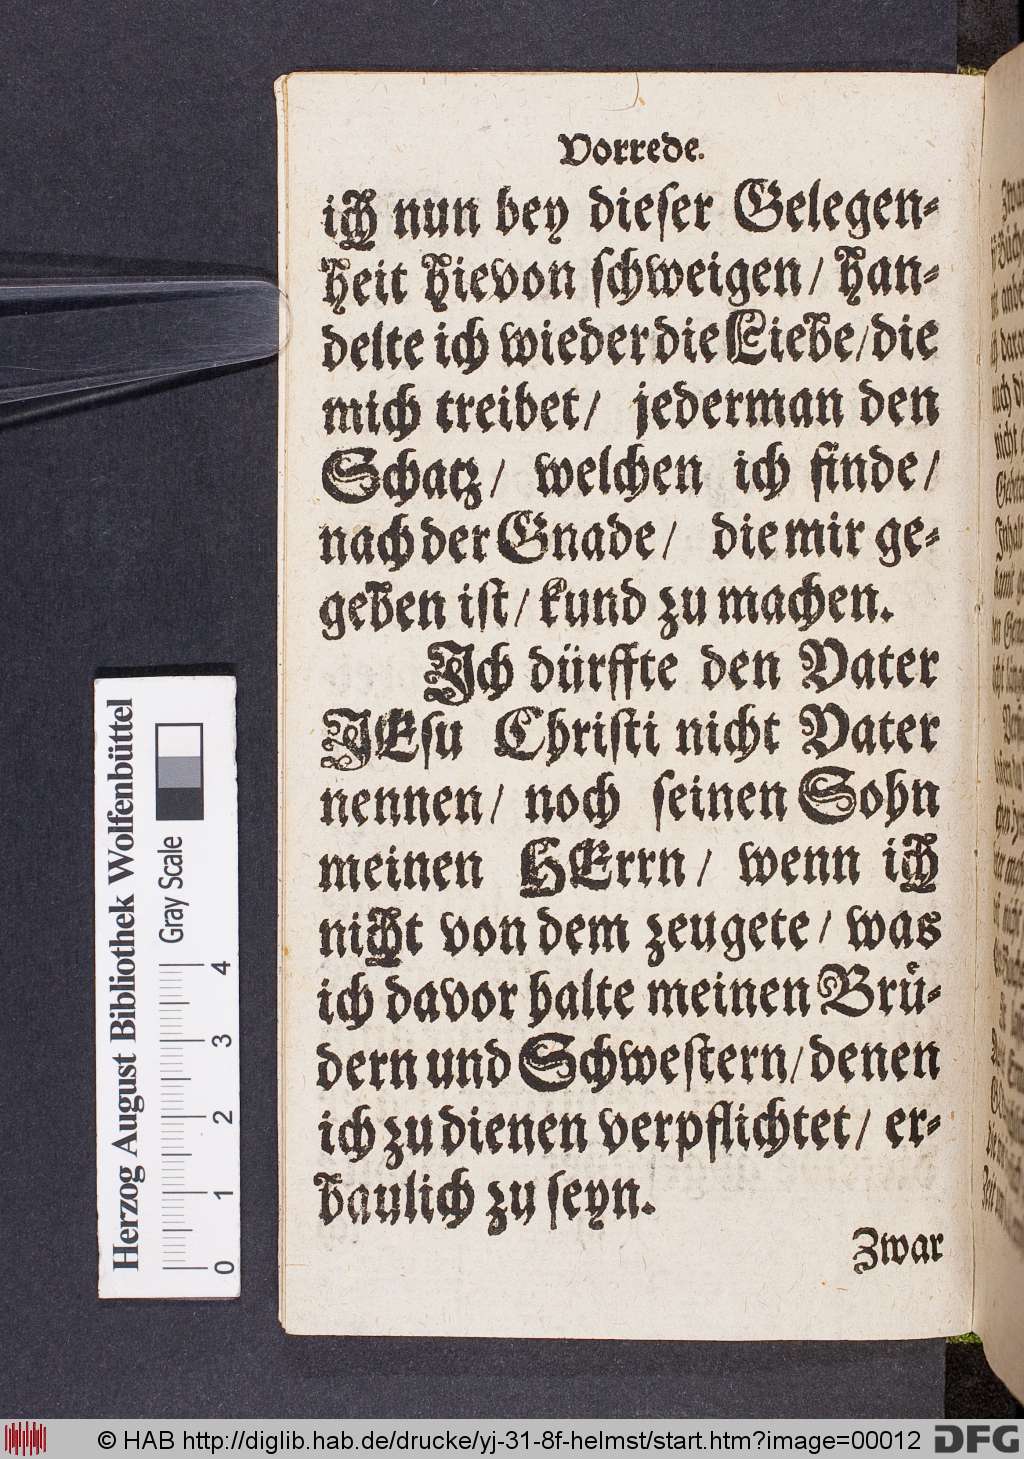 Vorrede.
ich nun bey dieser Gelegen⸗
heit hievon schweigen / han⸗
delte ich wieder die Liebe / die
mich treibet / jederman den
Schatz / welchen ich finde /
nach der Gnade / die mir ge⸗
geben ist / kund zu machen.
Ich dürffte den Vater
JEsu Christi nicht Vater
nennen / noch seinen Sohn
meinen HErrn / wenn ich
nicht von dem zeugete / was
ich davor halte meinen Brü⸗
dern und Schwestern / denen
ich zu dienen verpflichtet / er⸗
baulich zu seyn.
Zwar
Herzog August Bibliothek Wolfenbüttel
Gray Scale
0 1 2 3 4
© HAB http://diglib.hab.de/drucke/yj-31-8f-helmst/start.htm?image=00012
DFG